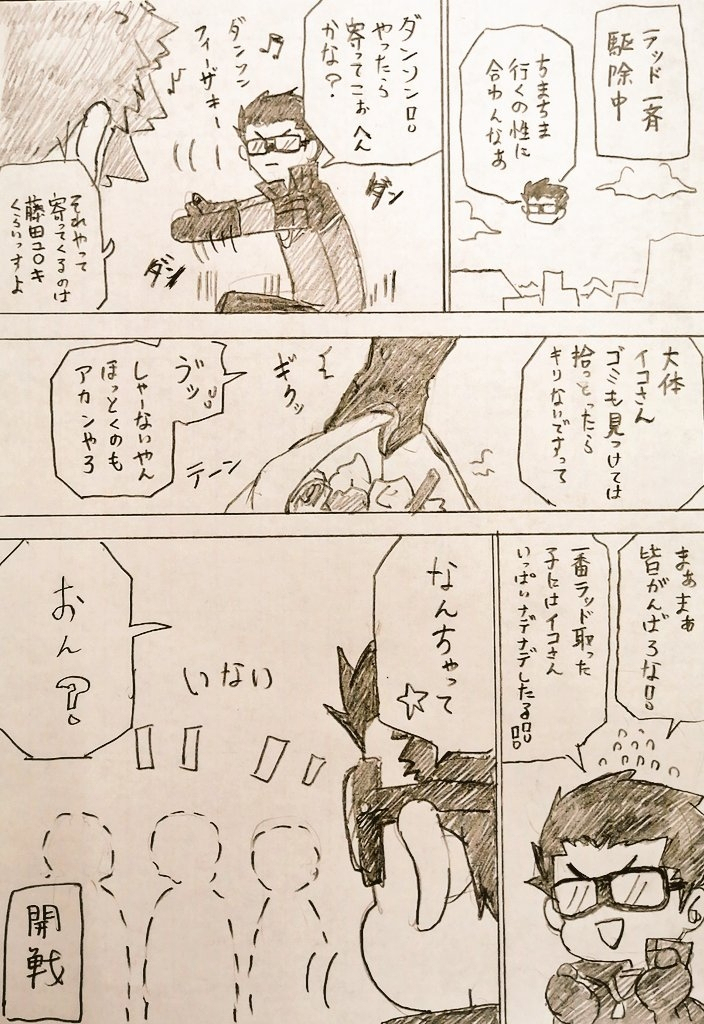 ラッド一斉
駆除中
ちまちま
行くの性に
合わんなぁ
ダンソン!!
やったら
寄ってこぉへん
かな?
♪
ダンソン
フィーザキー
♪
ダン
ダン
それやって
寄ってくるのは
藤田ユ○キ
くらいっすよ
大体
イコさん
ゴミも見つけては
拾っとったら
キリないですって
ギクッ
ヴッ!!
しゃーないやん
ほっとくのも
アカンやろ
テーン
まぁまぁ
皆がんばろな!!
一番ラッド取った
子にはイコさん
いっぱいナデナデしたる!!!
なんちゃって
☆
いない
おん?
開戦